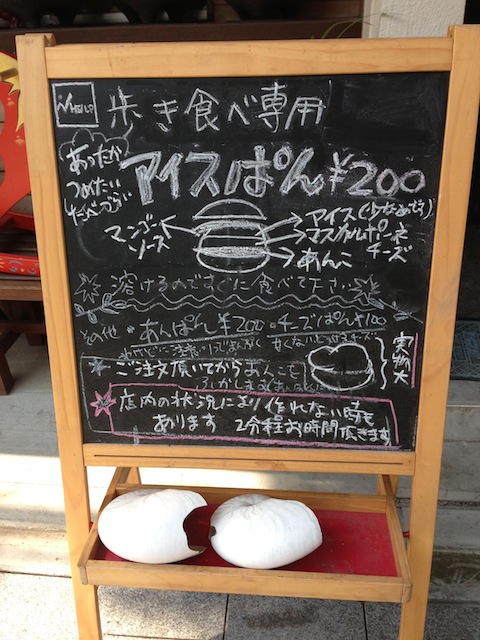 歩き食べ専用
あったか
つめたい
アイスぱん¥200
マンゴー
ソース
アイス
マスカルポーネ
チーズ
あんこ
溶けるのですぐに食べて下さい
その他・あんぱん¥200・チーズぱん¥100
ご注文頂いてからあんこも
ふかします
実物大
店内の状況により作れない時も
あります 2分程お時間頂きます